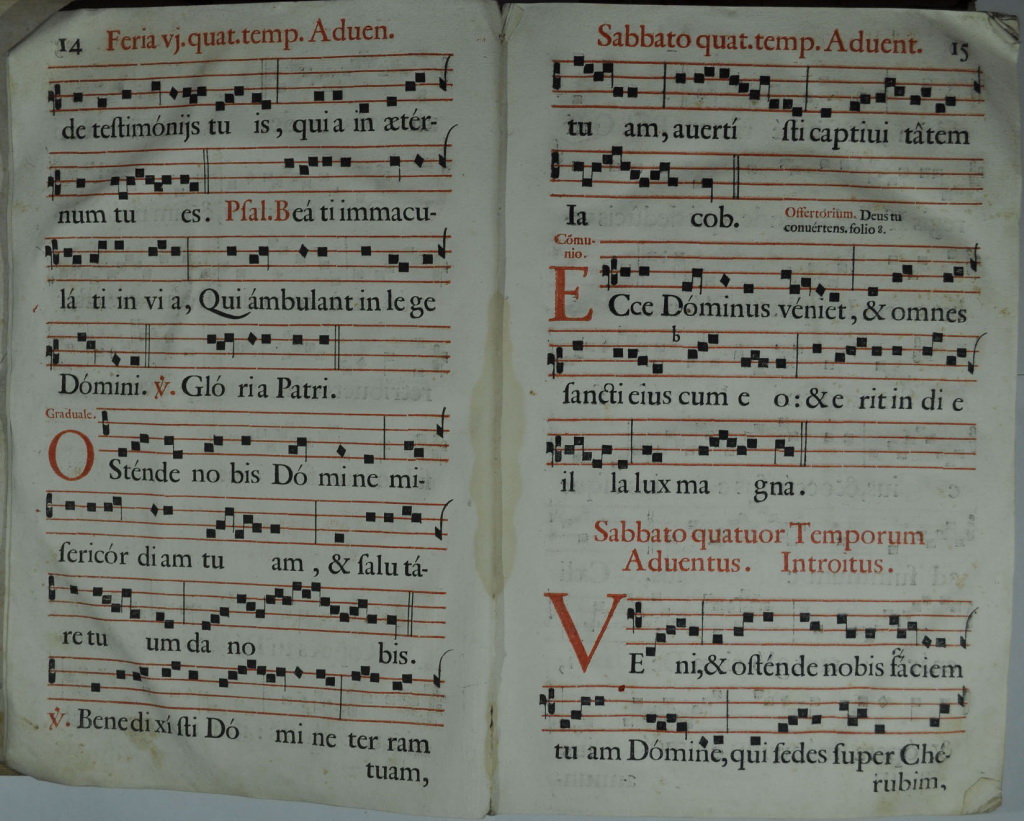 14 Feria vj. quat. temp. Aduen.
de testimónijs tu is, quia in ætér-
num tu es. Psal. Beá ti immacu-
lá ti in vi a, Qui ámbulant in le ge
Dómini. ℣. Gló ria Patri.
Graduale.
O Sténde no bis Dó mi ne mi-
sericór diam tu am, & salu tá-
re tu um da no bis.
℣. Benedi xí sti Dó mi ne ter ram
tuam,
Sabbato quat. temp. Aduent. 15
tu am, auertí sti captiui tâtem
Ia cob. Offertorium. Deus tu
conuértens. folio 8.
Cómu-
nio.
E Cce Dóminus véniet, & omnes
b
sancti eius cum e o: & e rit in di e
il la lux ma gna.
Sabbato quatuor Temporum
Aduentus. Introitus.
V E ni, & osténde nobis fáciem
tu am Dómine, qui sedes super Ché-
rubim,